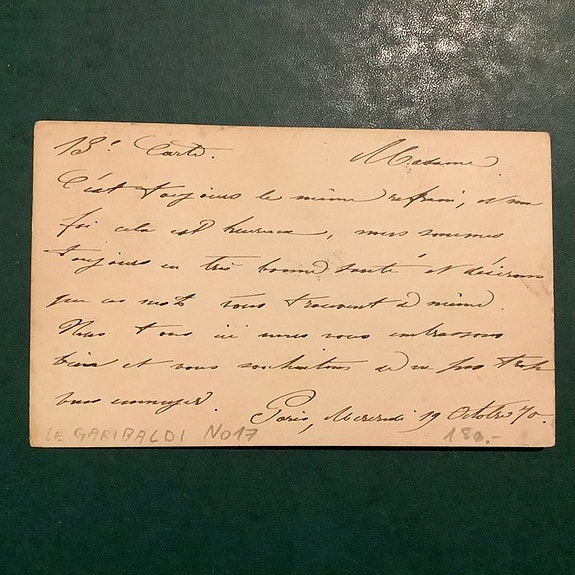 13e Carte. Madame.
C'est toujours le même refrain, et ma
foi cela est heureux, nous sommes
toujours en très bonne santé et désirons
que ces mots vous trouvent de même.
Nous tous ici nous vous embrassons
bien et vous souhaitons de ne pas trop
vous ennuyer. Paris, Mercredi 19 Octobre 70.
LE GARIBALDI No 17 180.-